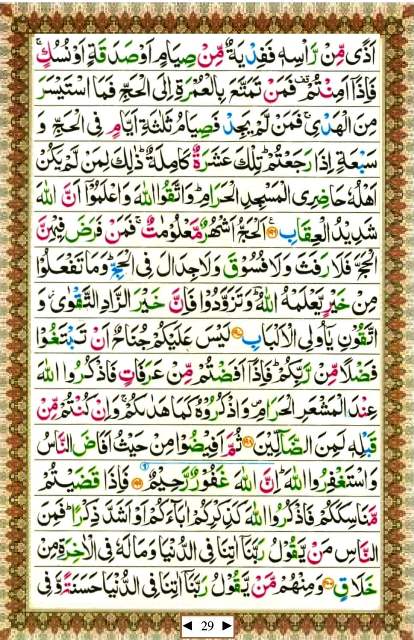 اَذًى مِّنْ رَّاْسِهٖ فَفِدْيَةٌ مِّنْ صِيَامٍ اَوْ صَدَقَةٍ اَوْ نُسُكٍ ۚ
فَاِذَاۤ اَمِنْتُمْ ۥ فَمَنْ تَمَتَّعَ بِالْعُمْرَةِ اِلَى الْحَجِّ فَمَا اسْتَيْسَرَ
مِنَ الْهَدْيِ ۚ فَمَنْ لَّمْ يَجِدْ فَصِيَامُ ثَلٰثَةِ اَيَّامٍ فِى الْحَجِّ وَ
سَبْعَةٍ اِذَا رَجَعْتُمْ ؕ تِلْكَ عَشَرَةٌ كَامِلَةٌ ؕ ذٰلِكَ لِمَنْ لَّمْ يَكُنْ
اَهْلُهٗ حَاضِرِى الْمَسْجِدِ الْحَرَامِ ؕ وَاتَّقُوا اللّٰهَ وَاعْلَمُوْۤا اَنَّ اللّٰهَ
شَدِيْدُ الْعِقَابِ ﴿۱۹۶﴾ اَلْحَجُّ اَشْهُرٌ مَّعْلُوْمٰتٌ ۚ فَمَنْ فَرَضَ فِيْهِنَّ
الْحَجَّ فَلَا رَفَثَ وَلَا فُسُوْقَ وَلَا جِدَالَ فِى الْحَجِّ ؕ وَمَا تَفْعَلُوْا
مِنْ خَيْرٍ يَّعْلَمْهُ اللّٰهُ ؕ وَتَزَوَّدُوْا فَاِنَّ خَيْرَ الزَّادِ التَّقْوٰى ۫ وَ
اتَّقُوْنِ يٰۤاُولِى الْاَلْبَابِ ﴿۱۹۷﴾ لَيْسَ عَلَيْكُمْ جُنَاحٌ اَنْ تَبْتَغُوْا
فَضْلًا مِّنْ رَّبِّكُمْ ؕ فَاِذَاۤ اَفَضْتُمْ مِّنْ عَرَفَاتٍ فَاذْكُرُوا اللّٰهَ
عِنْدَ الْمَشْعَرِ الْحَرَامِ ۪ وَاذْكُرُوْهُ كَمَا هَدٰىكُمْ ۚ وَاِنْ كُنْتُمْ مِّنْ
قَبْلِهٖ لَمِنَ الضَّآلِّيْنَ ﴿۱۹۸﴾ ثُمَّ اَفِيْضُوْا مِنْ حَيْثُ اَفَاضَ النَّاسُ
وَاسْتَغْفِرُوا اللّٰهَ ؕ اِنَّ اللّٰهَ غَفُوْرٌ رَّحِيْمٌ ﴿۱۹۹﴾ فَاِذَا قَضَيْتُمْ
مَّنَاسِكَكُمْ فَاذْكُرُوا اللّٰهَ كَذِكْرِكُمْ اٰبَآءَكُمْ اَوْ اَشَدَّ ذِكْرًا ؕ فَمِنَ
النَّاسِ مَنْ يَّقُوْلُ رَبَّنَاۤ اٰتِنَا فِى الدُّنْيَا وَمَا لَهٗ فِى الْاٰخِرَةِ مِنْ
خَلَاقٍ ﴿۲۰۰﴾ وَمِنْهُمْ مَّنْ يَّقُوْلُ رَبَّنَاۤ اٰتِنَا فِى الدُّنْيَا حَسَنَةً وَّ فِى
◄ 29 ►